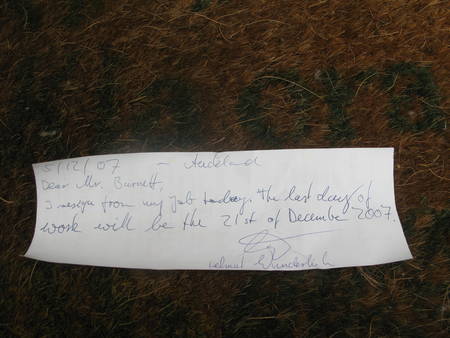 5/12/07 - Auckland
Dear Mr. Burnett,
I resign from my job today. The last day of
work will be the 21st of December 2007.
Helmut Wunderlich